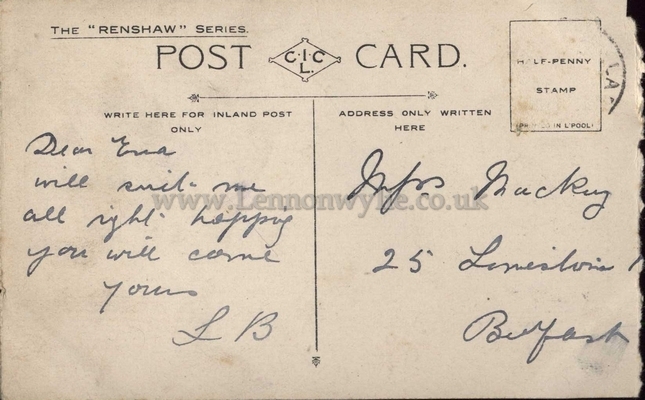 THE "RENSHAW" SERIES.
POST CARD.
C.I.C
L.
WRITE HERE FOR INLAND POST
ONLY
ADDRESS ONLY WRITTEN
HERE
HALF-PENNY
STAMP
IN L'POOL
LA
Dear Ena
will suit me
all right hopping
you will come
Yours
L B
www.Lennonwylie.co.uk
Miss Mackey
25
Belfast